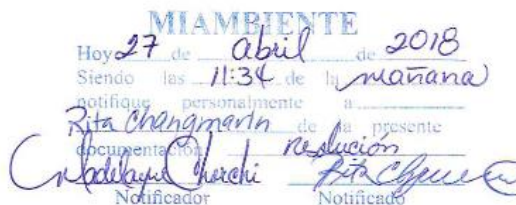 MIAMBIENTE
Hoy 27 de abril de 2018
Siendo las 11:34 de la mañana
notifique personalmente a
Rita Changmarin de la presente
documentación resolución
Notificador Notificado